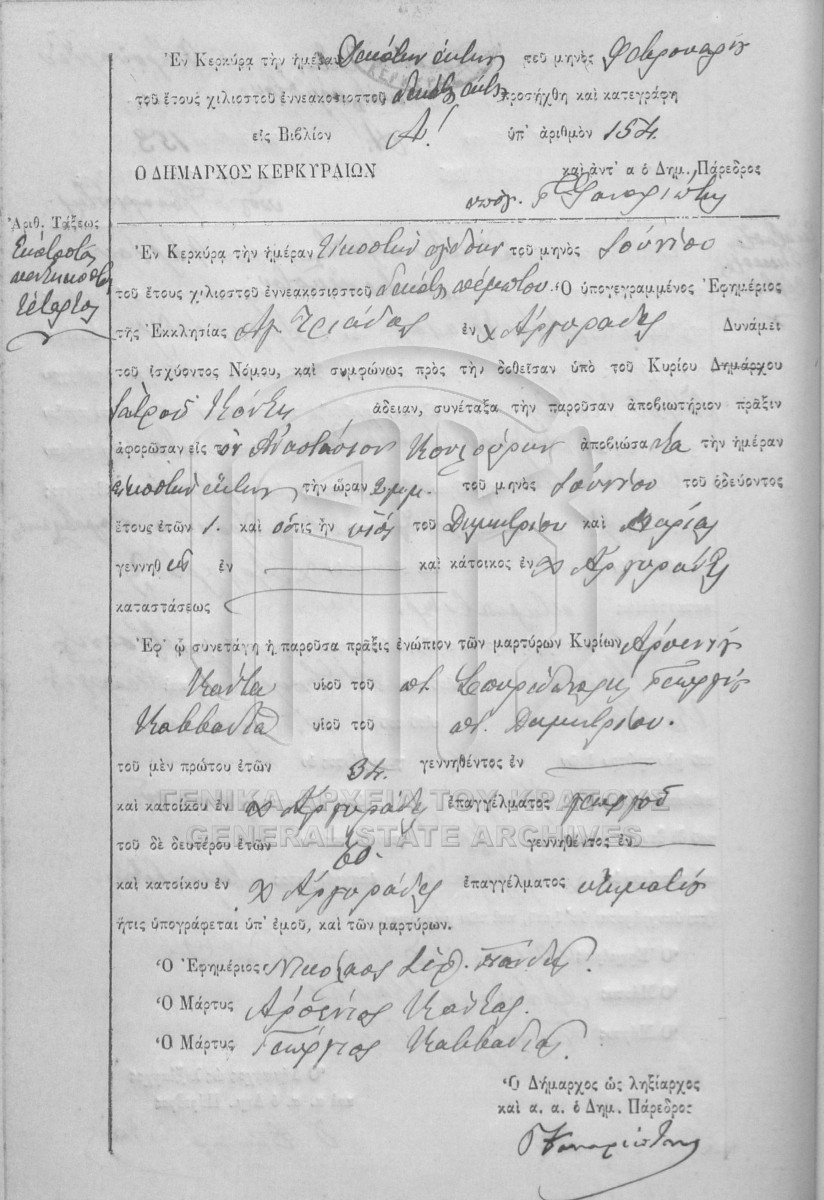 Ἐν Κερκύρᾳ τὴν ἡμέραν Δεκάτην ἕκτην τοῦ μηνὸς Φεβρουαρίου
τοῦ ἔτους χιλιοστοῦ ἐννεακοσιοστοῦ δεκάτου ἕκτου προσήχθη καὶ κατεγράφη
εἰς Βιβλίον Α! ὑπ' ἀριθμὸν 154.
Ο ΔΗΜΑΡΧΟΣ ΚΕΡΚΥΡΑΙΩΝ
καὶ ἀντ' α ὁ Δημ. Πάρεδρος
ὑπογ. Γ
Ἀριθ. Τάξεως
Ἑκατοστὸς
πεντηκοστὸς
τέταρτος
Ἐν Κερκύρᾳ τὴν ἡμέραν Εἰκοστὴν ὀγδόην τοῦ μηνὸς Ἰουνίου
τοῦ ἔτους χιλιοστοῦ ἐννεακοσιοστοῦ δεκάτου πέμπτου. Ὁ ὑπογεγραμμένος Ἐφημέριος
τῆς Ἐκκλησίας Ἁγ. Τριάδος ἐν χ Ἀργυράδες Δυνάμει
τοῦ ἰσχύοντος Νόμου, καὶ συμφώνως πρὸς τὴν δοθεῖσαν ὑπὸ τοῦ Κυρίου Δημάρχου
Ἰατροῦ Κόντη ἄδειαν, συνέταξα τὴν παροῦσαν ἀποβιωτήριον πρᾶξιν
ἀφορῶσαν εἰς τὸν Ἀναστάσιον Κουλούρην ἀποβιώσαντα τὴν ἡμέραν
εἰκοστὴν ἕκτην τὴν ὥραν 2 μμ. τοῦ μηνὸς Ἰουνίου τοῦ ὁδεύοντος
ἔτους ἐτῶν 1. καὶ ὅστις ἦν υἱὸς τοῦ Δημητρίου καὶ Μαρίας
γεννηθεὶς ἐν καὶ κάτοικος ἐν χ Ἀργυράδες
καταστάσεως
Ἐφ' ᾧ συνετάγη ἡ παροῦσα πρᾶξις ἐνώπιον τῶν μαρτύρων Κυρίων Ἀρσενίου
Κάντα υἱοῦ τοῦ ποτ. Σπυρίδωνος Γεωργίου
Καββαδία υἱοῦ τοῦ ποτ. Δημητρίου.
τοῦ μὲν πρώτου ἐτῶν 34. γεννηθέντος ἐν
καὶ κατοίκου ἐν χ Ἀργυράδες ἐπαγγέλματος γεωργοῦ
ΓΕΝΙΚΑ ΑΡΧΕΙΑ ΤΟΥ ΚΡΑΤΟΥΣ
GENERAL STATE ARCHIVES
τοῦ δὲ δευτέρου ἐτῶν 60. γεννηθέντος ἐν
καὶ κατοίκου ἐν χ Ἀργυράδες ἐπαγγέλματος κτηματίου
ἥτις ὑπογράφεται ὑπ' ἐμοῦ, καὶ τῶν μαρτύρων.
Ὁ Ἐφημέριος Νικόλαος
Ὁ Μάρτυς Ἀρσένιος Κάντας.
Ὁ Μάρτυς Γεώργιος Καββαδίας.
Ὁ Δήμαρχος ὡς ληξίαρχος
καὶ α. α. ὁ Δημ. Πάρεδρος